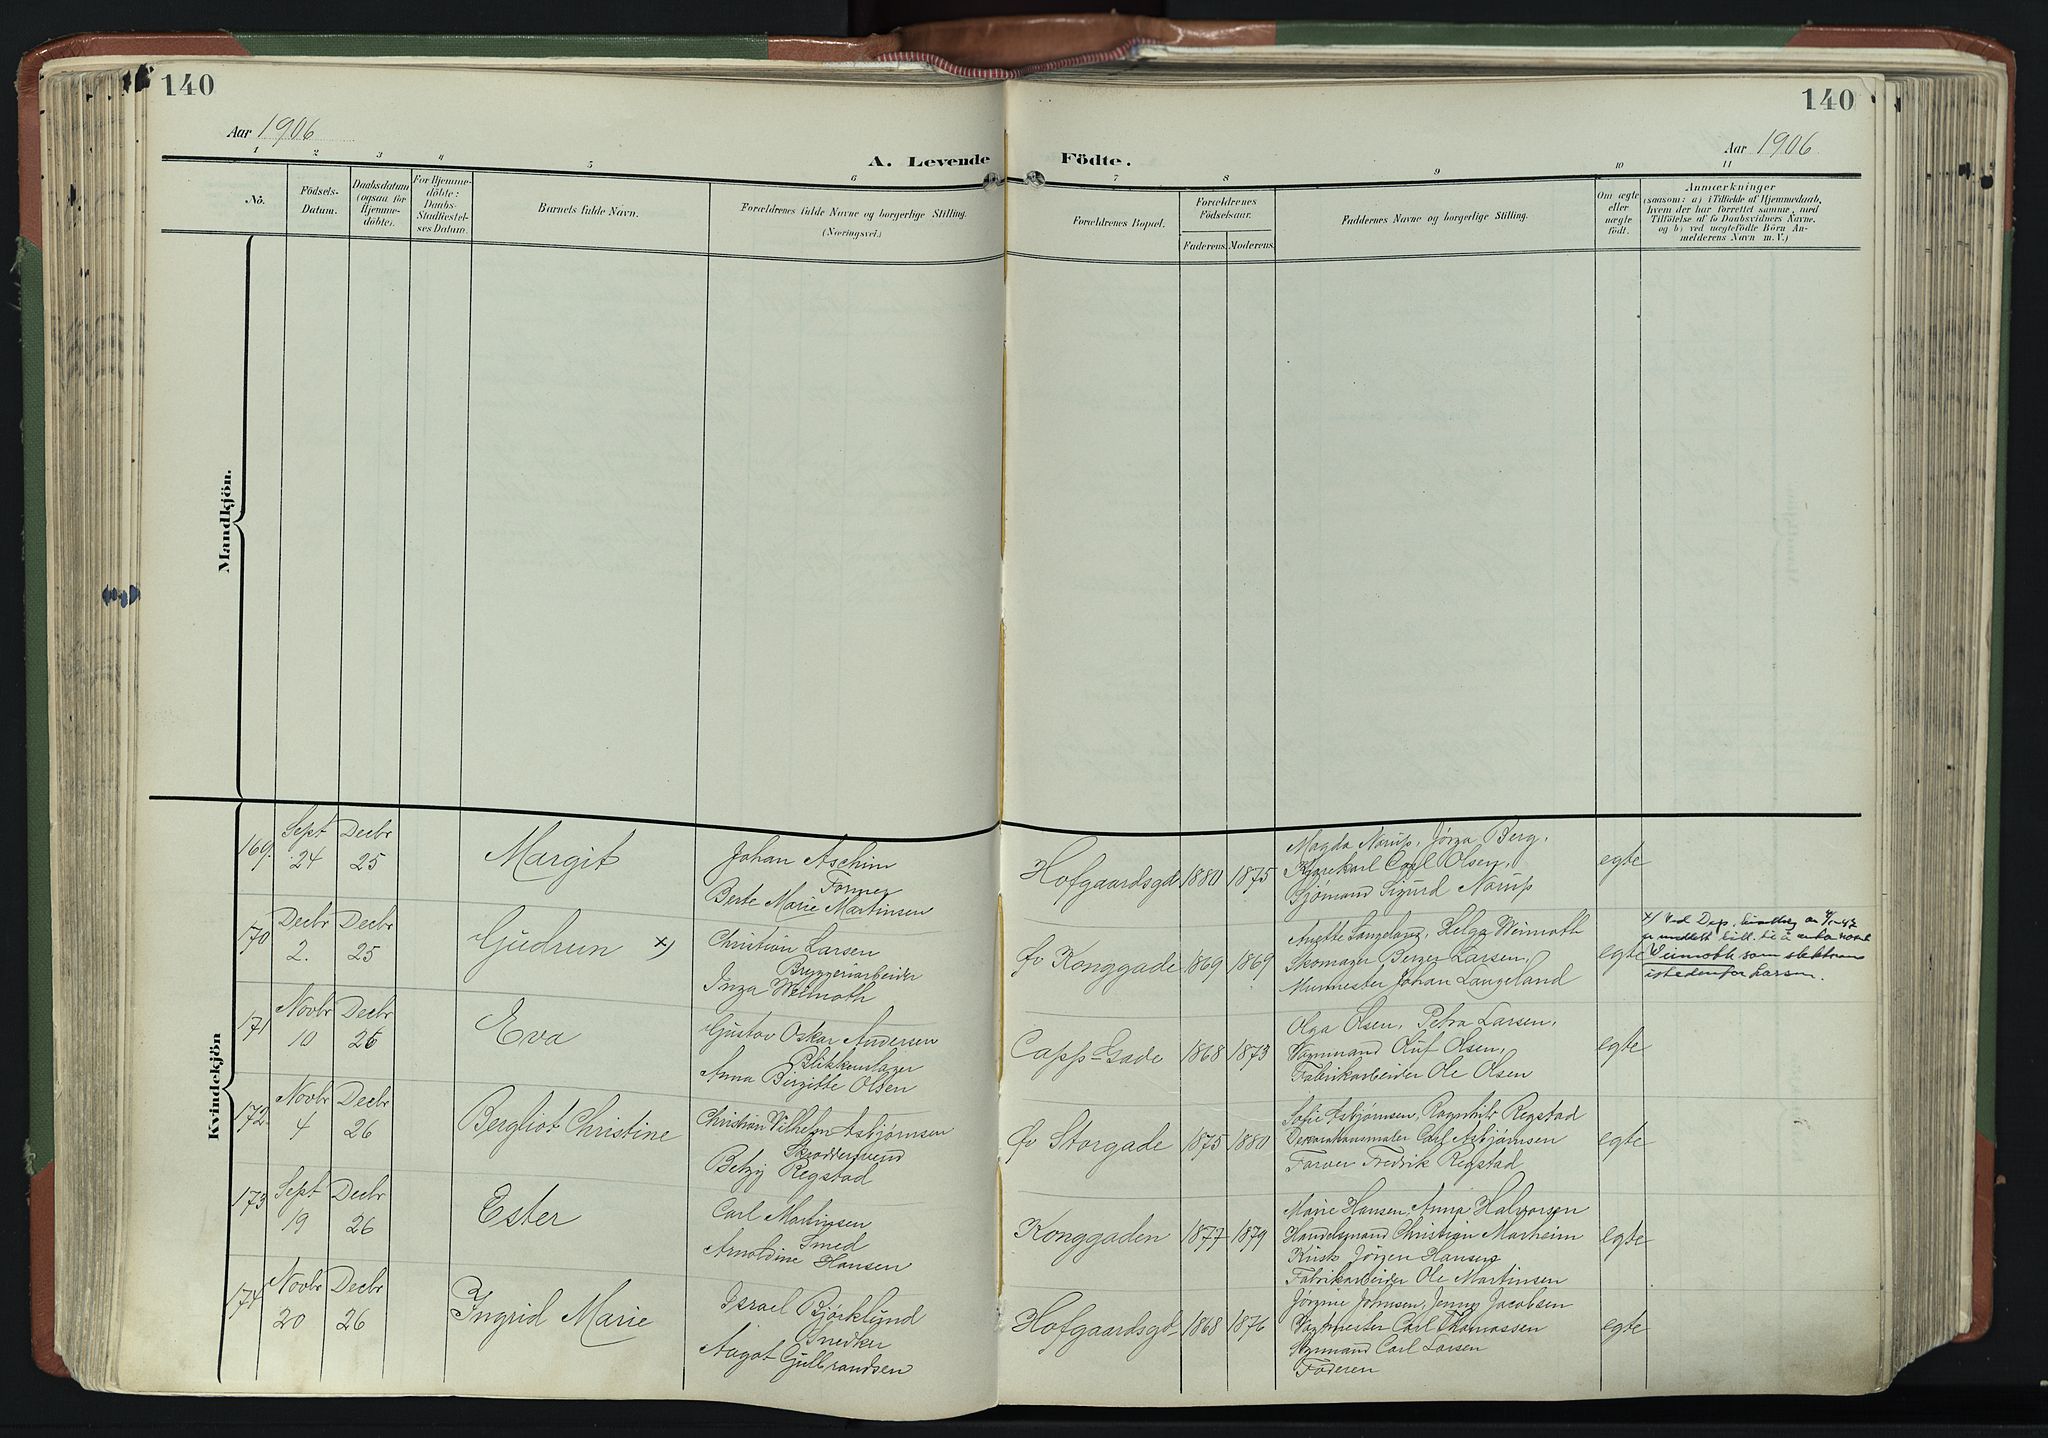 140
140
Aar 1906
Aar 1906
A. Levende Födte.
1 2 3 4 5 6 7 8 9 10 11
No.
Födsels-
Datum.
Daabsdatum
(ogsaa for
Hjemme-
döbte).
For Hjemme-
döbte:
Daabs-
Stadfæstel-
ses Datum.
Barnets fulde Navn.
Forældrenes fulde Navne og borgerlige Stilling.
(Næringsvei.)
Forældrenes Bopæl.
Forældrenes
Födselsaar.
Faderens.
Moderens.
Faddernes Navne og borgerlige Stilling.
Om ægte
eller
uægte
födt.
Anmærkninger
(saasom: a) i Tilfælde af Hjemmedaab,
hvem der har forrettet samme, med
Tilföielse af to Daabsvidners Navne.
og b) ved uægtefödte Börn An-
melderens Navn m. V.)
Mandkjön.
Kvindekjön
169.
Sept
24
Decbr
25
Margit
Johan Aschim
Former
Berte Marie Martinsen
Hofgaardsgd
1880
1875
Magda Norup, Jørga Berg,
Kjørekarl Carl Olsen,
Sjømand Sigurd Norup
egte
170
Decbr
2.
Decbr
25
Gudrun x)
Christian Larsen
Bryggeriarbeider
Inga Weimoth
Øv Konggade
1869
1869
Anette Langeland, Helga Weimoth
Skomager Berger Larsen,
Murmester Johan Langeland
egte
x) Ved Dep.
Weimoth som slektsnavn
istedenfor Larsen.
171
Novbr
10
Decbr
26
Eva
Gustav Oskar Andersen
Blikkenslager
Anna Birgitte Olsen
Capp. Gade
1868
1873
Olga Olsen, Petra Larsen,
Vognmand Oluf Olsen,
Fabrikarbeider Ole Olsen
egte
172
Novbr
4
Decbr
26
Bergliot Christine
Christian Vilhelm Asbjørnsen
Skræddersvend
Betzy Regstad
Øv Storgade
1875
1880
Sofie Asbjørnsen, Ragnhild Regstad
Dekorationsmaler Carl Asbjørnsen
Farver Fredrik Regstad
egte
173
Sept
19
Decbr
26
Ester
Carl Martinsen
Smed
Arnoldine Hansen
Konggaden
1877
1879
Marie Hansen, Anna Halvorsen
Handelsmand Christian Marheim
Kusk Jørgen Hansen
Fabrikarbeider Ole Martinsen
egte
174
Novbr
20
Decbr
26
Ingrid Marie
Israel Bjørklund
Snedker
Aagot Gulbrandsen
Hofgaardsgd
1868
1876
Jørgine Johnsen, Jenny Jacobsen
Vagtmester Carl Thomassen
Vognmand Carl Larsen
Faderen
egte